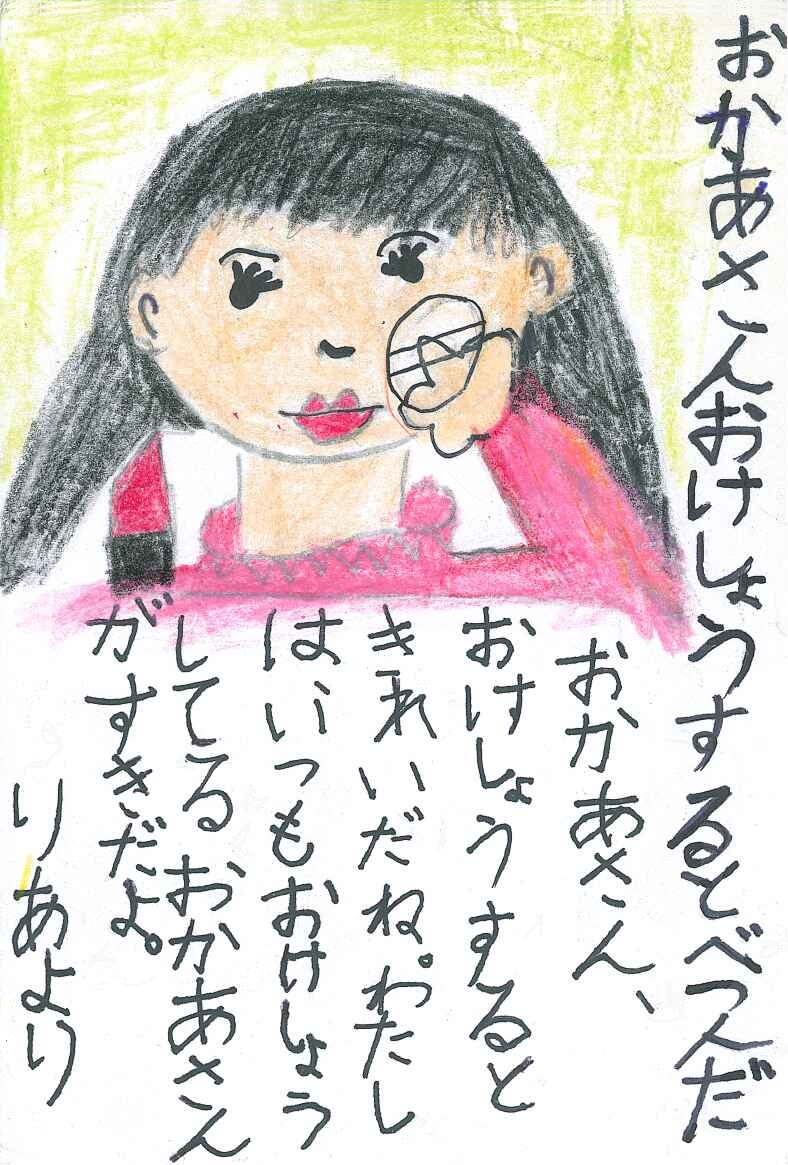 おかあさんおけしょうするとべつんだ
おかあさん、
おけしょうすると
きれいだね。わたし
はいつもおけしょう
してるおかあさん
がすきだよ。
りあより